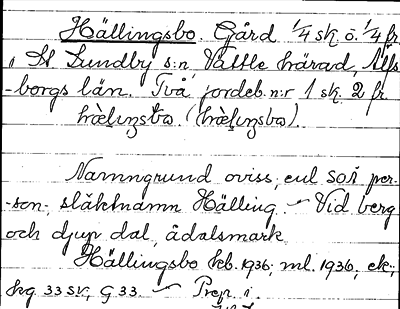 Hällingsbo. Gård 1/4 sk. o. 1/4 fr
i St Lundby s:n, Vättle härad, Älfs
-borgs län. Två jordeb.n:r 1 sk. 2 fr
Namngrund oviss, eul SOÄ per-
-son-, släktnamn Hälling. - Vid berg
och djup dal, ådalsmark.
Hällingsbo kb. 1936; ml. 1936, ek.;
Skg 33 SV, G 33. - Prep. i.